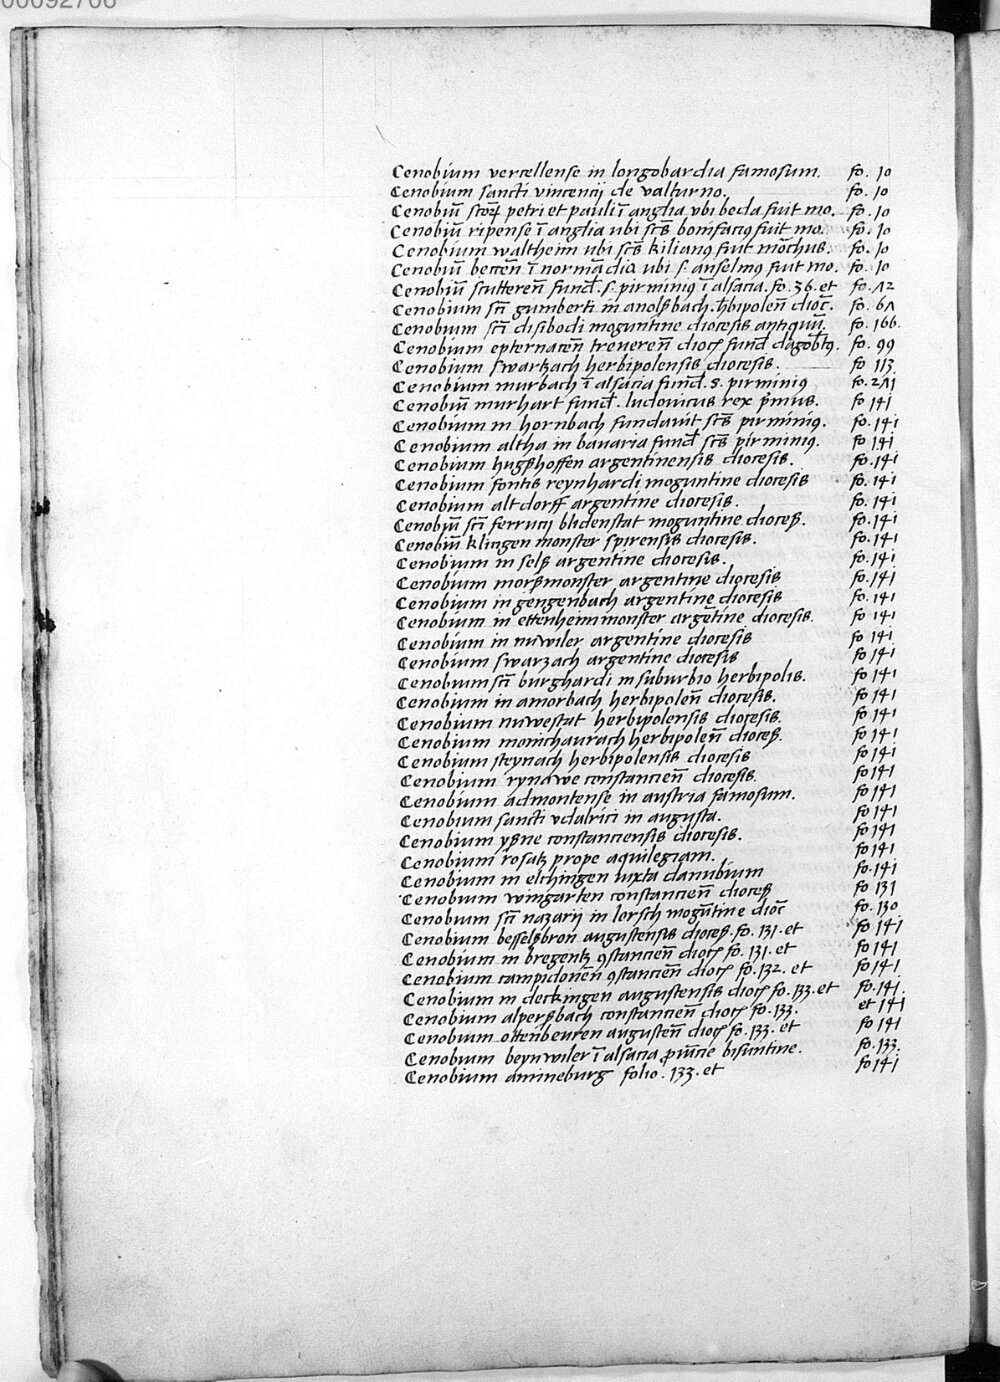 00092706
Cenobium vercellense in longobardia famosum. fo. 10
Cenobium sancti vincencij de valturno. fo. 10
Cenobiū sctōꝝ petri et pauli ī anglia vbi beda fuit mo. fo. 10
Cenobiū ripense ī anglia ubi sctꝰ bonifaciꝰ fuit mo. fo. 10
Cenobium waltheim ubi sctꝰ kilianꝰ fuit mōchus. fo. 10
Cenobiū beccēn ī normādia ubi s. anselmꝰ fuit mo. fo. 10
Cenobiū scutterēn fund. s. pirminiꝰ ī alsacia. fo. 36. et fo. 12
Cenobium scti gumberti in anolßbach. hbipolen̄ dioc̄. fo. 61
Cenobium scti disibodi moguntine diocesis antiquū. fo. 166.
Cenobium epternacen̄ treveren̄ dioc fund dagobtꝰ. fo. 99
Cenobium swartzach herbipolensis diocesis. fo 113
Cenobium murbach ī alsacia fund. s. pirminiꝰ fo. 211
Cenobiū murhart fund. ludovicus rex pmus. fo 141
Cenobium in hornbach fundavit sctꝰ pirminiꝰ. fo. 141
Cenobium altha in bavaria fund sctꝰ pirminiꝰ. fo 141
Cenobium hugßhoffen argentinensis diocesis. fo. 141
Cenobium fontis reynhardi moguntine diocesis fo. 141
Cenobium altdorff argentine diocesis. fo. 141
Cenobiū scti ferrucij blidenstat moguntine dioceß. fo. 141
Cenobiū klingen monster spirensis diocesis. fo. 141
Cenobium in selß argentine diocesis. fo. 141
Cenobium morßmonster argentine diocesis fo. 141
Cenobium in gengenbach argentine diocesis fo. 141
Cenobium in ettenheimmonster argētine diocesis. fo 141
Cenobium in nuwiler argentine diocesis fo 141
Cenobium swarzach argentine diocesis fo 141
Cenobium scti burghardi in suburbio herbipolis. fo 141
Cenobium in amorbach herbipolen̄ diocesis. fo 141
Cenobium nuwestat herbipolensis diocesis. fo 141
Cenobium monichaurach herbipolen̄ dioceß. fo 141
Cenobium steynach herbipolensis diocesis fo 141
Cenobium rynawe constancien̄ diocesis. fo 141
Cenobium admontense in austria famosum. fo 141
Cenobium sancti vdalrici in augusta. fo 141
Cenobium yßne constanciensis diocesis. fo 141
Cenobium rosatz prope aquilegiam. fo 141
Cenobium in elchingen iuxta danubium fo. 141
Cenobium wingarten constancien̄ dioceß fo 131
Cenobium scti nazarij in lorsch mogūtine dioc̄ fo. 130
Cenobium besselßbron augustensis dioceß. fo. 131. et fo 141
Cenobium in bregentz ꝯstancien̄ dioc fo. 131. et fo 141
Cenobium campidonen̄ ꝯstancien̄ dioc fo. 132. et fo 141
Cenobium in deckingen augustensis dioc fo. 133. et fo. 141.
Cenobium alperßbach constancien̄ dioc fo. 133. et 141
Cenobium ottenbeuren augusten̄ dioc fo. 133. et fo 141
Cenobium beynwiler ī alsacia ꝓvīncie bisuntine. fo. 133.
Cenobium amineburg folio. 133. et fo 141